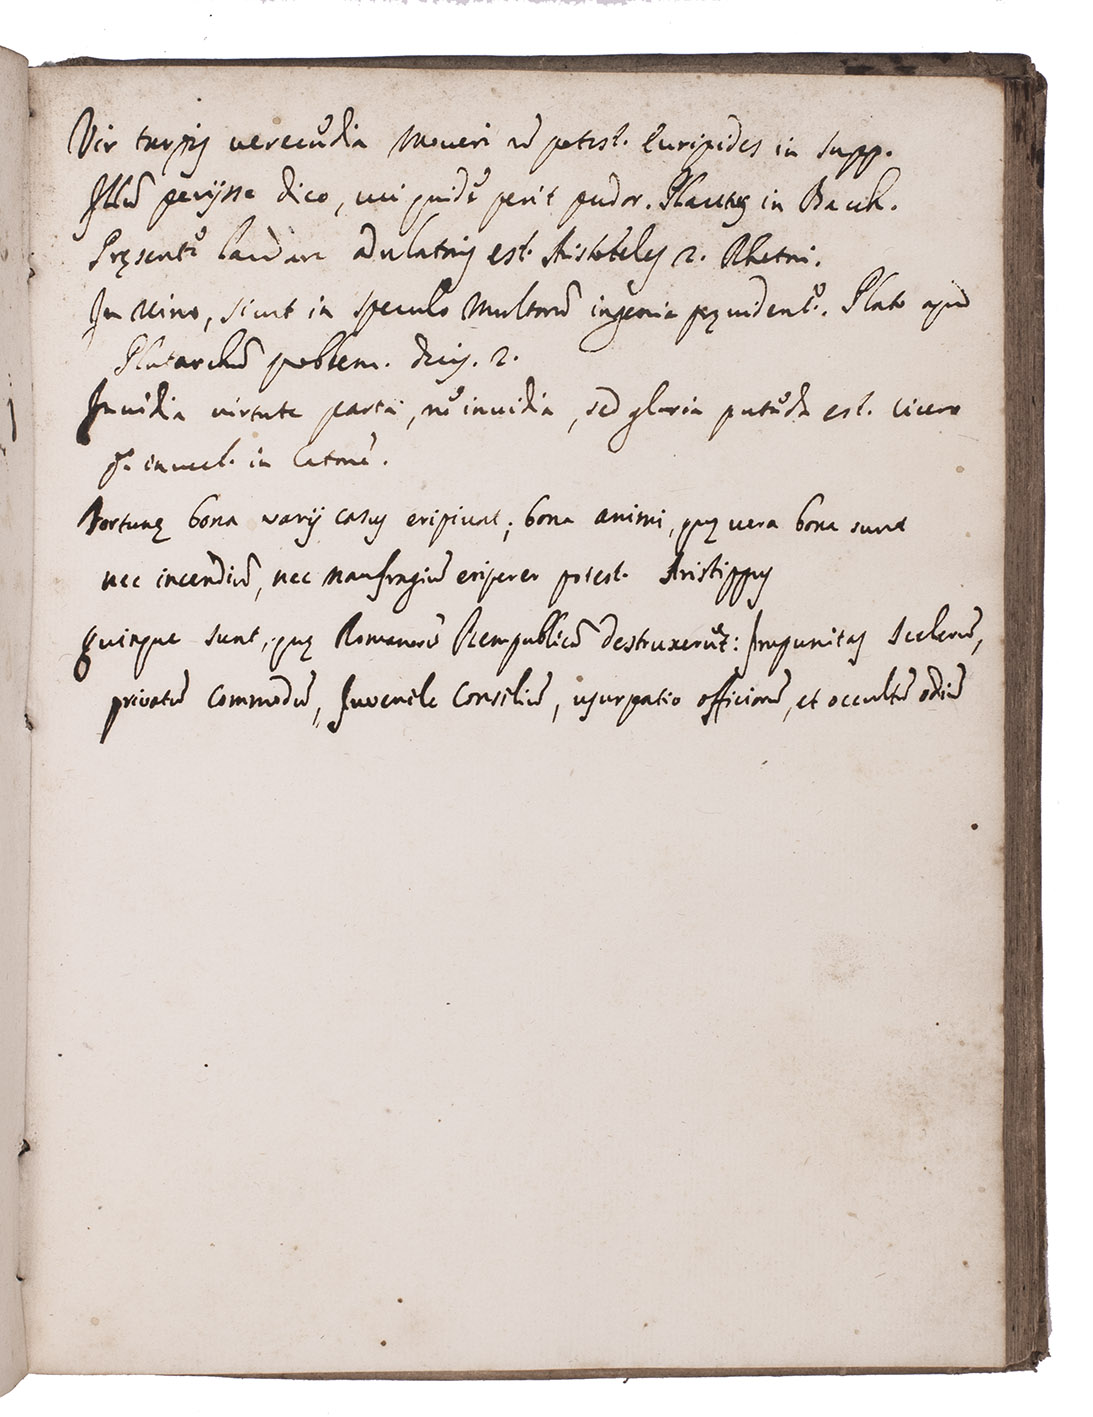 Vir turpis verecūdia moveri nō potest. Euripides in Supp.
Illū perijsse dico, cui quidē perit pudor. Plautus in Bacch.
Pręsentē laudare adulatoris est. Aristoteles 2. Rhetori.
In vino, sicut in speculo multorū ingenia pręvidentr. Plato apud
Plutarchū problem. decis. 2.
Invidia virtute parta, nō invidia, sed gloria putāda est. Cicero
invect. in Catonē.
Fortunę bona varij casus eripiunt; bona animi, quę vera bona sunt
nec incendiū, nec naufragiū eriperer potest. Aristippus
Quinque sunt, quę Romanorū Rempublicā destruxerūt: Impunitas scelerū,
privatū commodū, Juvenile Consiliū, usurpatio officiorū, et occultū odiū